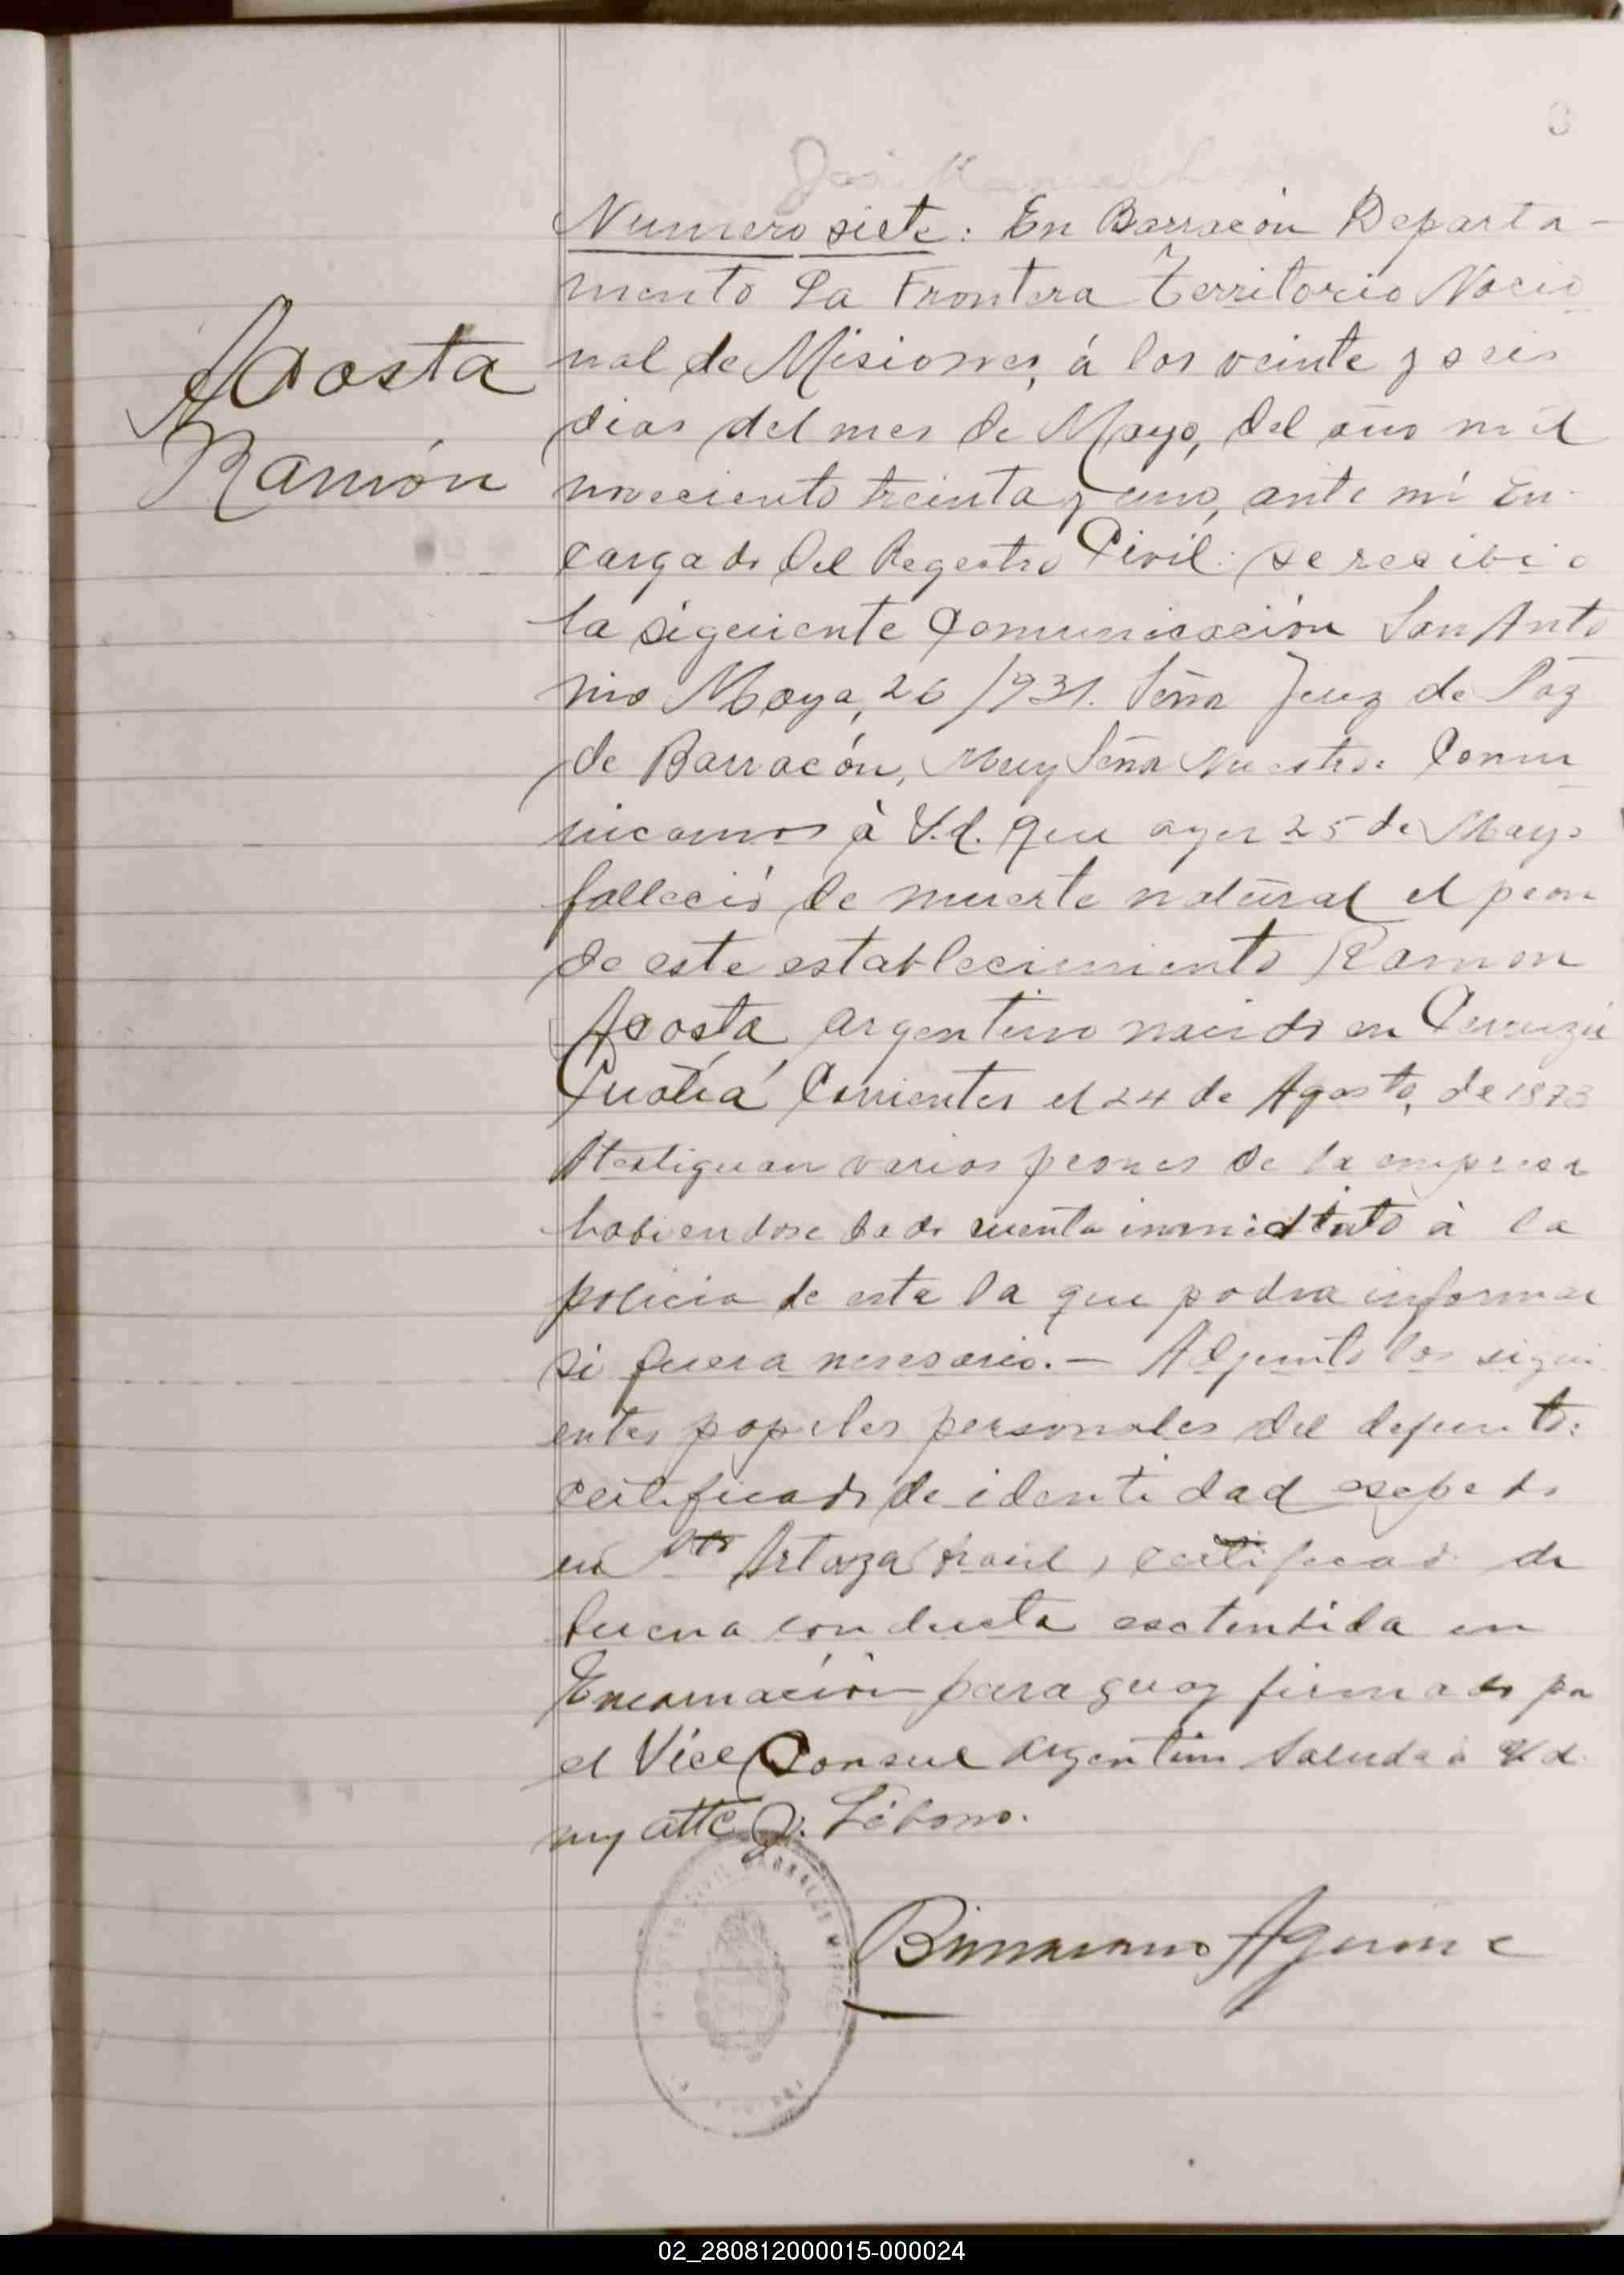 Acosta
Ramón
Numero siete: En Barracón Departa-
mento La Frontera Territorio Nacio
nal de Misiones, á los veinte y seis
dias del mes de Mayo, del año mil
noveciento treinta y uno, ante mi En-
cargado del Regestro Civil: se recibio
la siguiente Comunicación San Anto
nio Mayo, 26/931. Señor Juez de Páz
de Barracón, Muy Señor Nuestro: Comu
nicamos à V.d. que ayer 25 de Mayo
falleció de muerte natural el peon
de este establecimiento Ramon
Acosta argentino nacido en Curuzú
Cuatiá Corrientes el 24 de Agosto, de 1873
Atestiguan varios peones de la empresa
habiendose dado cuenta inmidtato à la
policia de esta la que podra informar
si fuera nesesario.- Adjunto los sigui
entes papeles personales del defunto:
certificado de identidad esepedo
en brasil, certificado de
buena conducta esctendida en
Encarnación paraguay firmado por
el Vice Consul argentino Saluda à Vd.
my atte J.
REGISTRO CIVIL
Aguirre
02_280812000015-000024